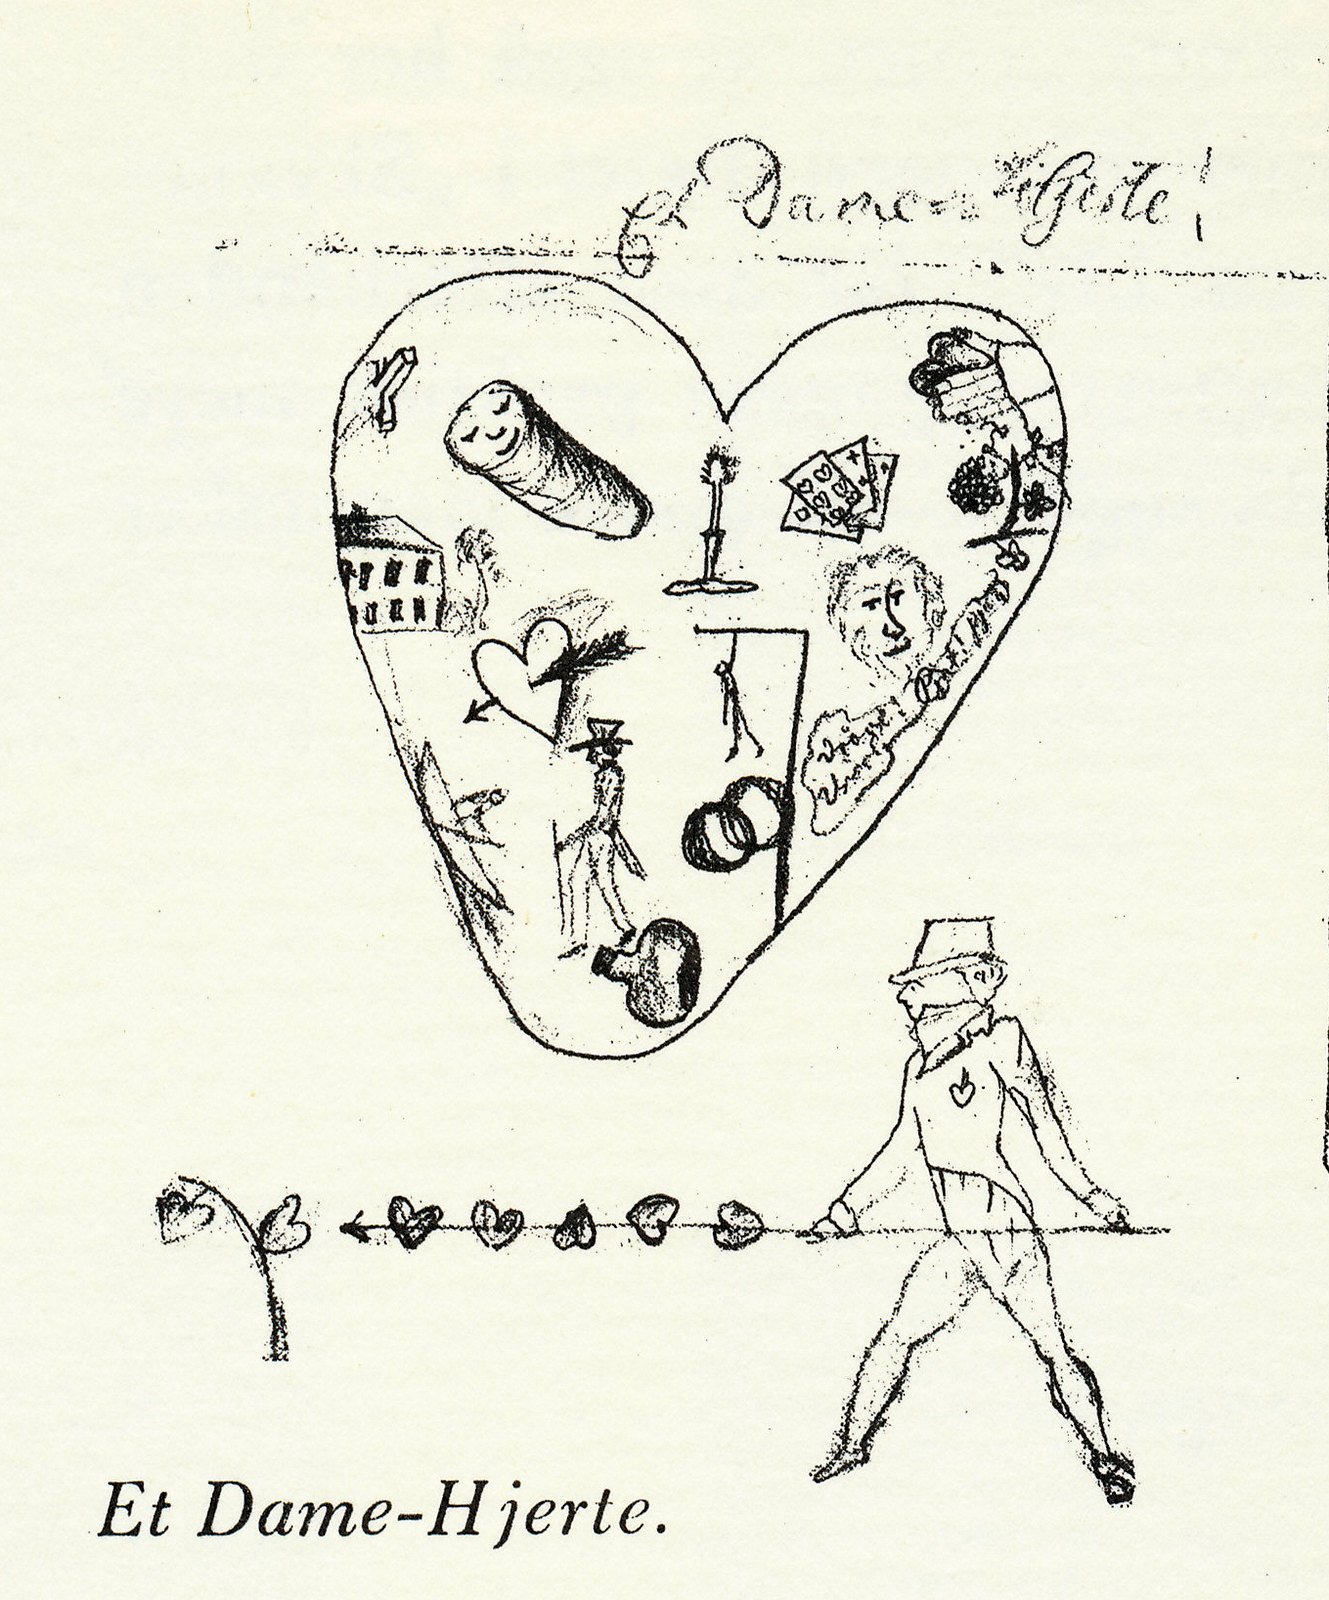 Et Dame-Hjerte!
Et Dame-Hjerte.